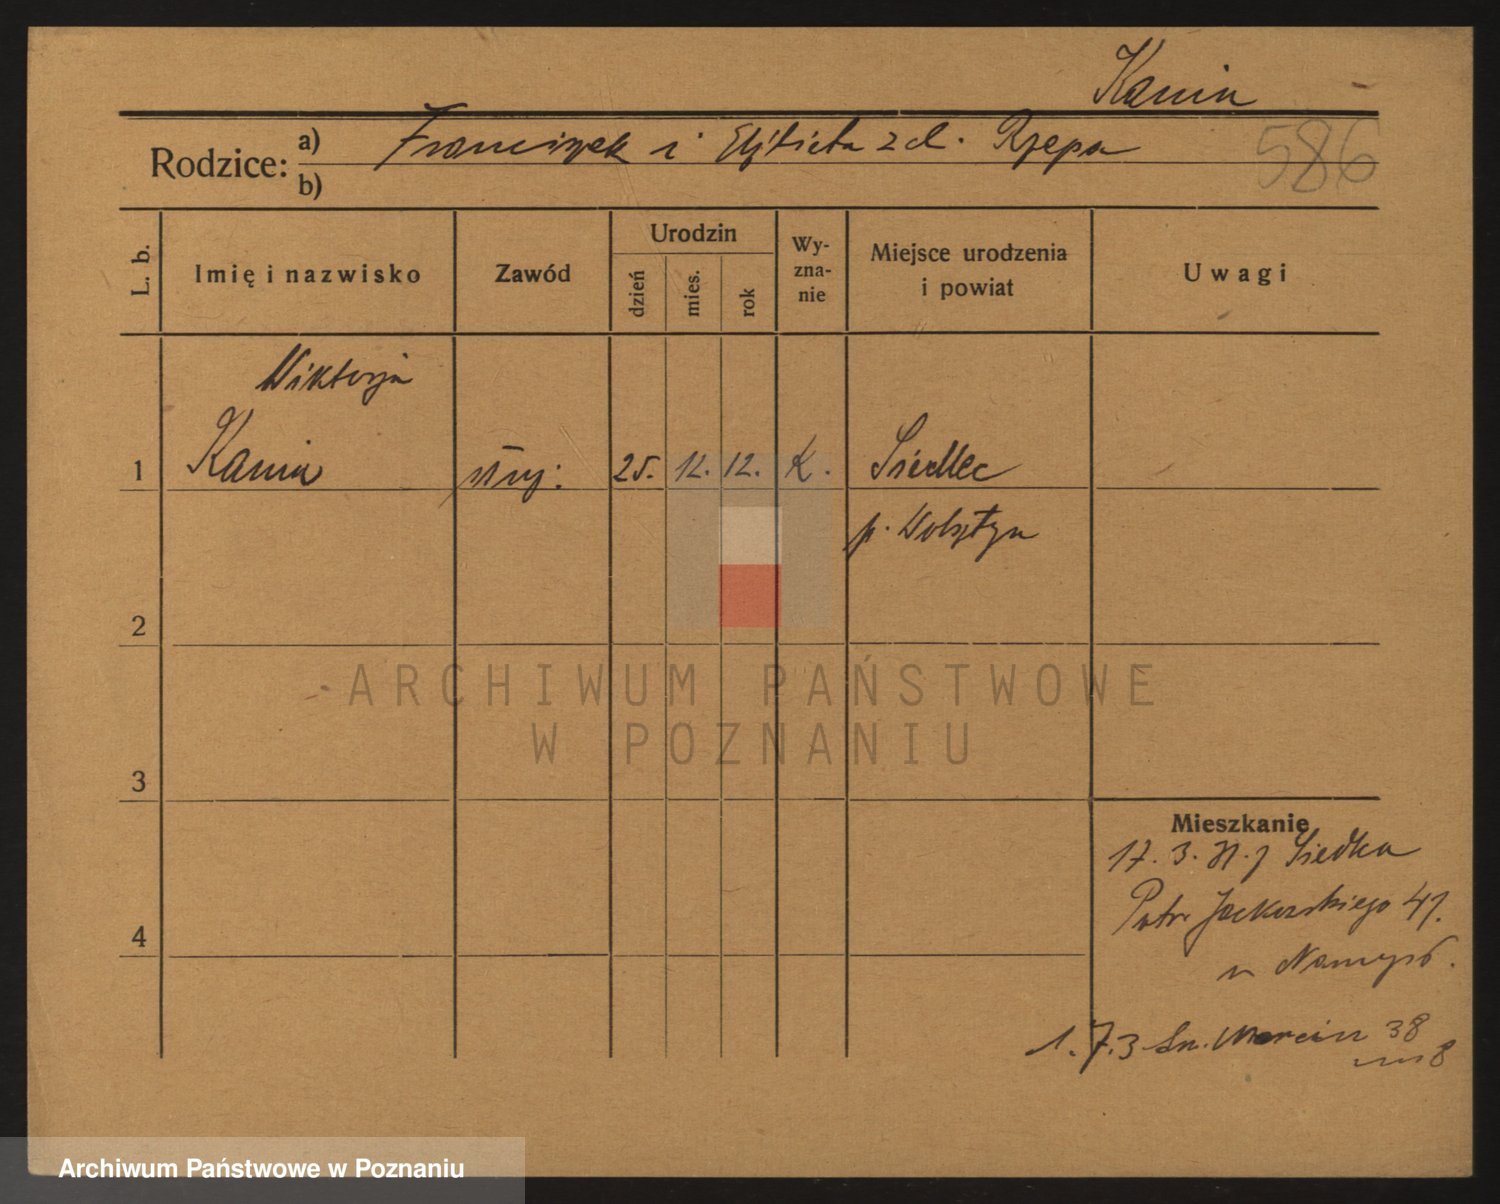 Kania
586
Rodzice: a) Franciszek i Elżbieta z d. Rzepa
b)
L. b.
Imię i nazwisko
Zawód
Urodzin
dzień
mies.
rok
Wy-
zna-
nie
Miejsce urodzenia
i powiat
Uwagi
Wiktorja
1 Kania 25. 12. 12. K. Siedlec
p. Wolsztyn
2
3
4
Mieszkanie
17. 3. z Siedlca
Jackowskiego 41.
1. 7. 3 Św. Marcin 38
8
ARCHIWUM PAŃSTWOWE
W POZNANIU
Archiwum Państwowe w Poznaniu